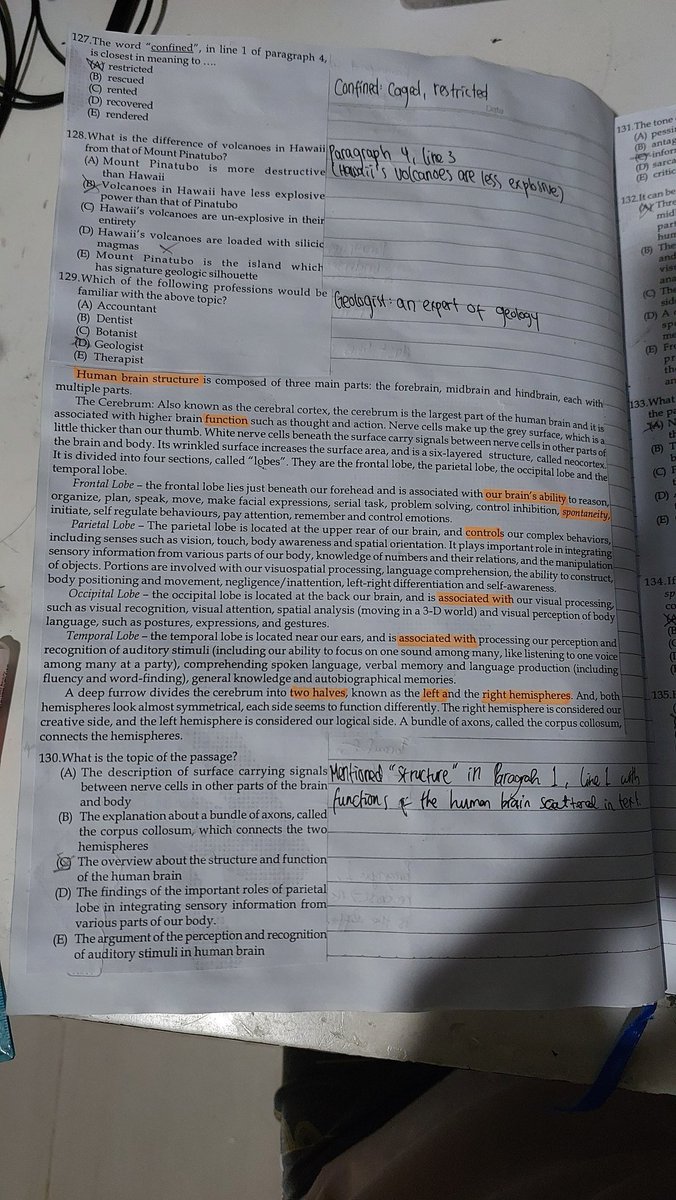 127.The word "confined", in line 1 of paragraph 4,
is closest in meaning to ....
(A) restricted
(B) rescued
(C) rented
(D) recovered
(E) rendered
Confined: Caged, restricted
128.What is the difference of volcanoes in Hawaii
from that of Mount Pinatubo?
(A) Mount Pinatubo is more destructive
than Hawaii
(B) Volcanoes in Hawaii have less explosive
power than that of Pinatubo
(C) Hawaii's volcanoes are un-explosive in their
entirety
(D) Hawaii's volcanoes are loaded with silicic
magmas
(E) Mount Pinatubo is the island which
has signature geologic silhouette
Paragraph 4, line 3
(Hawaii's volcanoes are less explosive)
129.Which of the following professions would be
familiar with the above topic?
(A) Accountant
(B) Dentist
(C) Botanist
(D) Geologist
(E) Therapist
Geologist: an expert of geology
Human brain structure is composed of three main parts: the forebrain, midbrain and hindbrain, each with
multiple parts.
The Cerebrum: Also known as the cerebral cortex, the cerebrum is the largest part of the human brain and it is
associated with higher brain function such as thought and action. Nerve cells make up the grey surface, which is a
little thicker than our thumb. White nerve cells beneath the surface carry signals between nerve cells in other parts of
the brain and body. Its wrinkled surface increases the surface area, and is a six-layered structure, called neocortex.
It is divided into four sections, called "lobes". They are the frontal lobe, the parietal lobe, the occipital lobe and the
temporal lobe.
Frontal Lobe – the frontal lobe lies just beneath our forehead and is associated with our brain's ability to reason,
organize, plan, speak, move, make facial expressions, serial task, problem solving, control inhibition, spontaneity,
initiate, self regulate behaviours, pay attention, remember and control emotions.
Parietal Lobe – The parietal lobe is located at the upper rear of our brain, and controls our complex behaviors,
including senses such as vision, touch, body awareness and spatial orientation. It plays important role in integrating
sensory information from various parts of our body, knowledge of numbers and their relations, and the manipulation
of objects. Portions are involved with our visuospatial processing, language comprehension, the ability to construct,
body positioning and movement, negligence/inattention, left-right differentiation and self-awareness.
Occipital Lobe – the occipital lobe is located at the back our brain, and is associated with our visual processing,
such as visual recognition, visual attention, spatial analysis (moving in a 3-D world) and visual perception of body
language, such as postures, expressions, and gestures.
Temporal Lobe – the temporal lobe is located near our ears, and is associated with processing our perception and
recognition of auditory stimuli (including our ability to focus on one sound among many, like listening to one voice
among many at a party), comprehending spoken language, verbal memory and language production (including
fluency and word-finding), general knowledge and autobiographical memories.
A deep furrow divides the cerebrum into two halves, known as the left and the right hemispheres. And, both
hemispheres look almost symmetrical, each side seems to function differently. The right hemisphere is considered our
creative side, and the left hemisphere is considered our logical side. A bundle of axons, called the corpus collosum,
connects the hemispheres.
130.What is the topic of the passage?
(A) The description of surface carrying signals
between nerve cells in other parts of the brain
and body
(B) The explanation about a bundle of axons, called
the corpus collosum, which connects the two
hemispheres
(C) The overview about the structure and function
of the human brain
(D) The findings of the important roles of parietal
lobe in integrating sensory information from
various parts of our body.
(E) The argument of the perception and recognition
of auditory stimuli in human brain
Mentioned "structure" in Paragraph 1, line 1 with
functions of the human brain scattered in text.
131.The tone
(A)
(B)
(C)
(D)
(E)
132.It can be
(A)
(B) The
and
(C) The
(D) A
(E)
133.What
the
(A)
(B)
(C)
(D)
(E)
134.If
135.